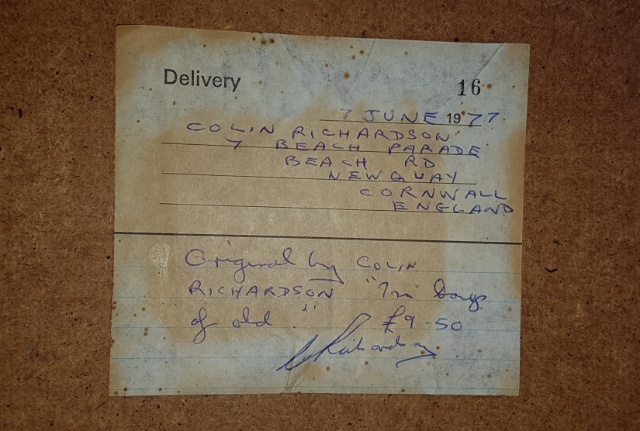 Delivery 16
7 JUNE 1977
COLIN RICHARDSON
7 BEACH PARADE
BEACH RD
NEWQUAY
CORNWALL
ENGLAND
Original by COLIN
RICHARDSON "In Days
of old" £9-50
C Richardson